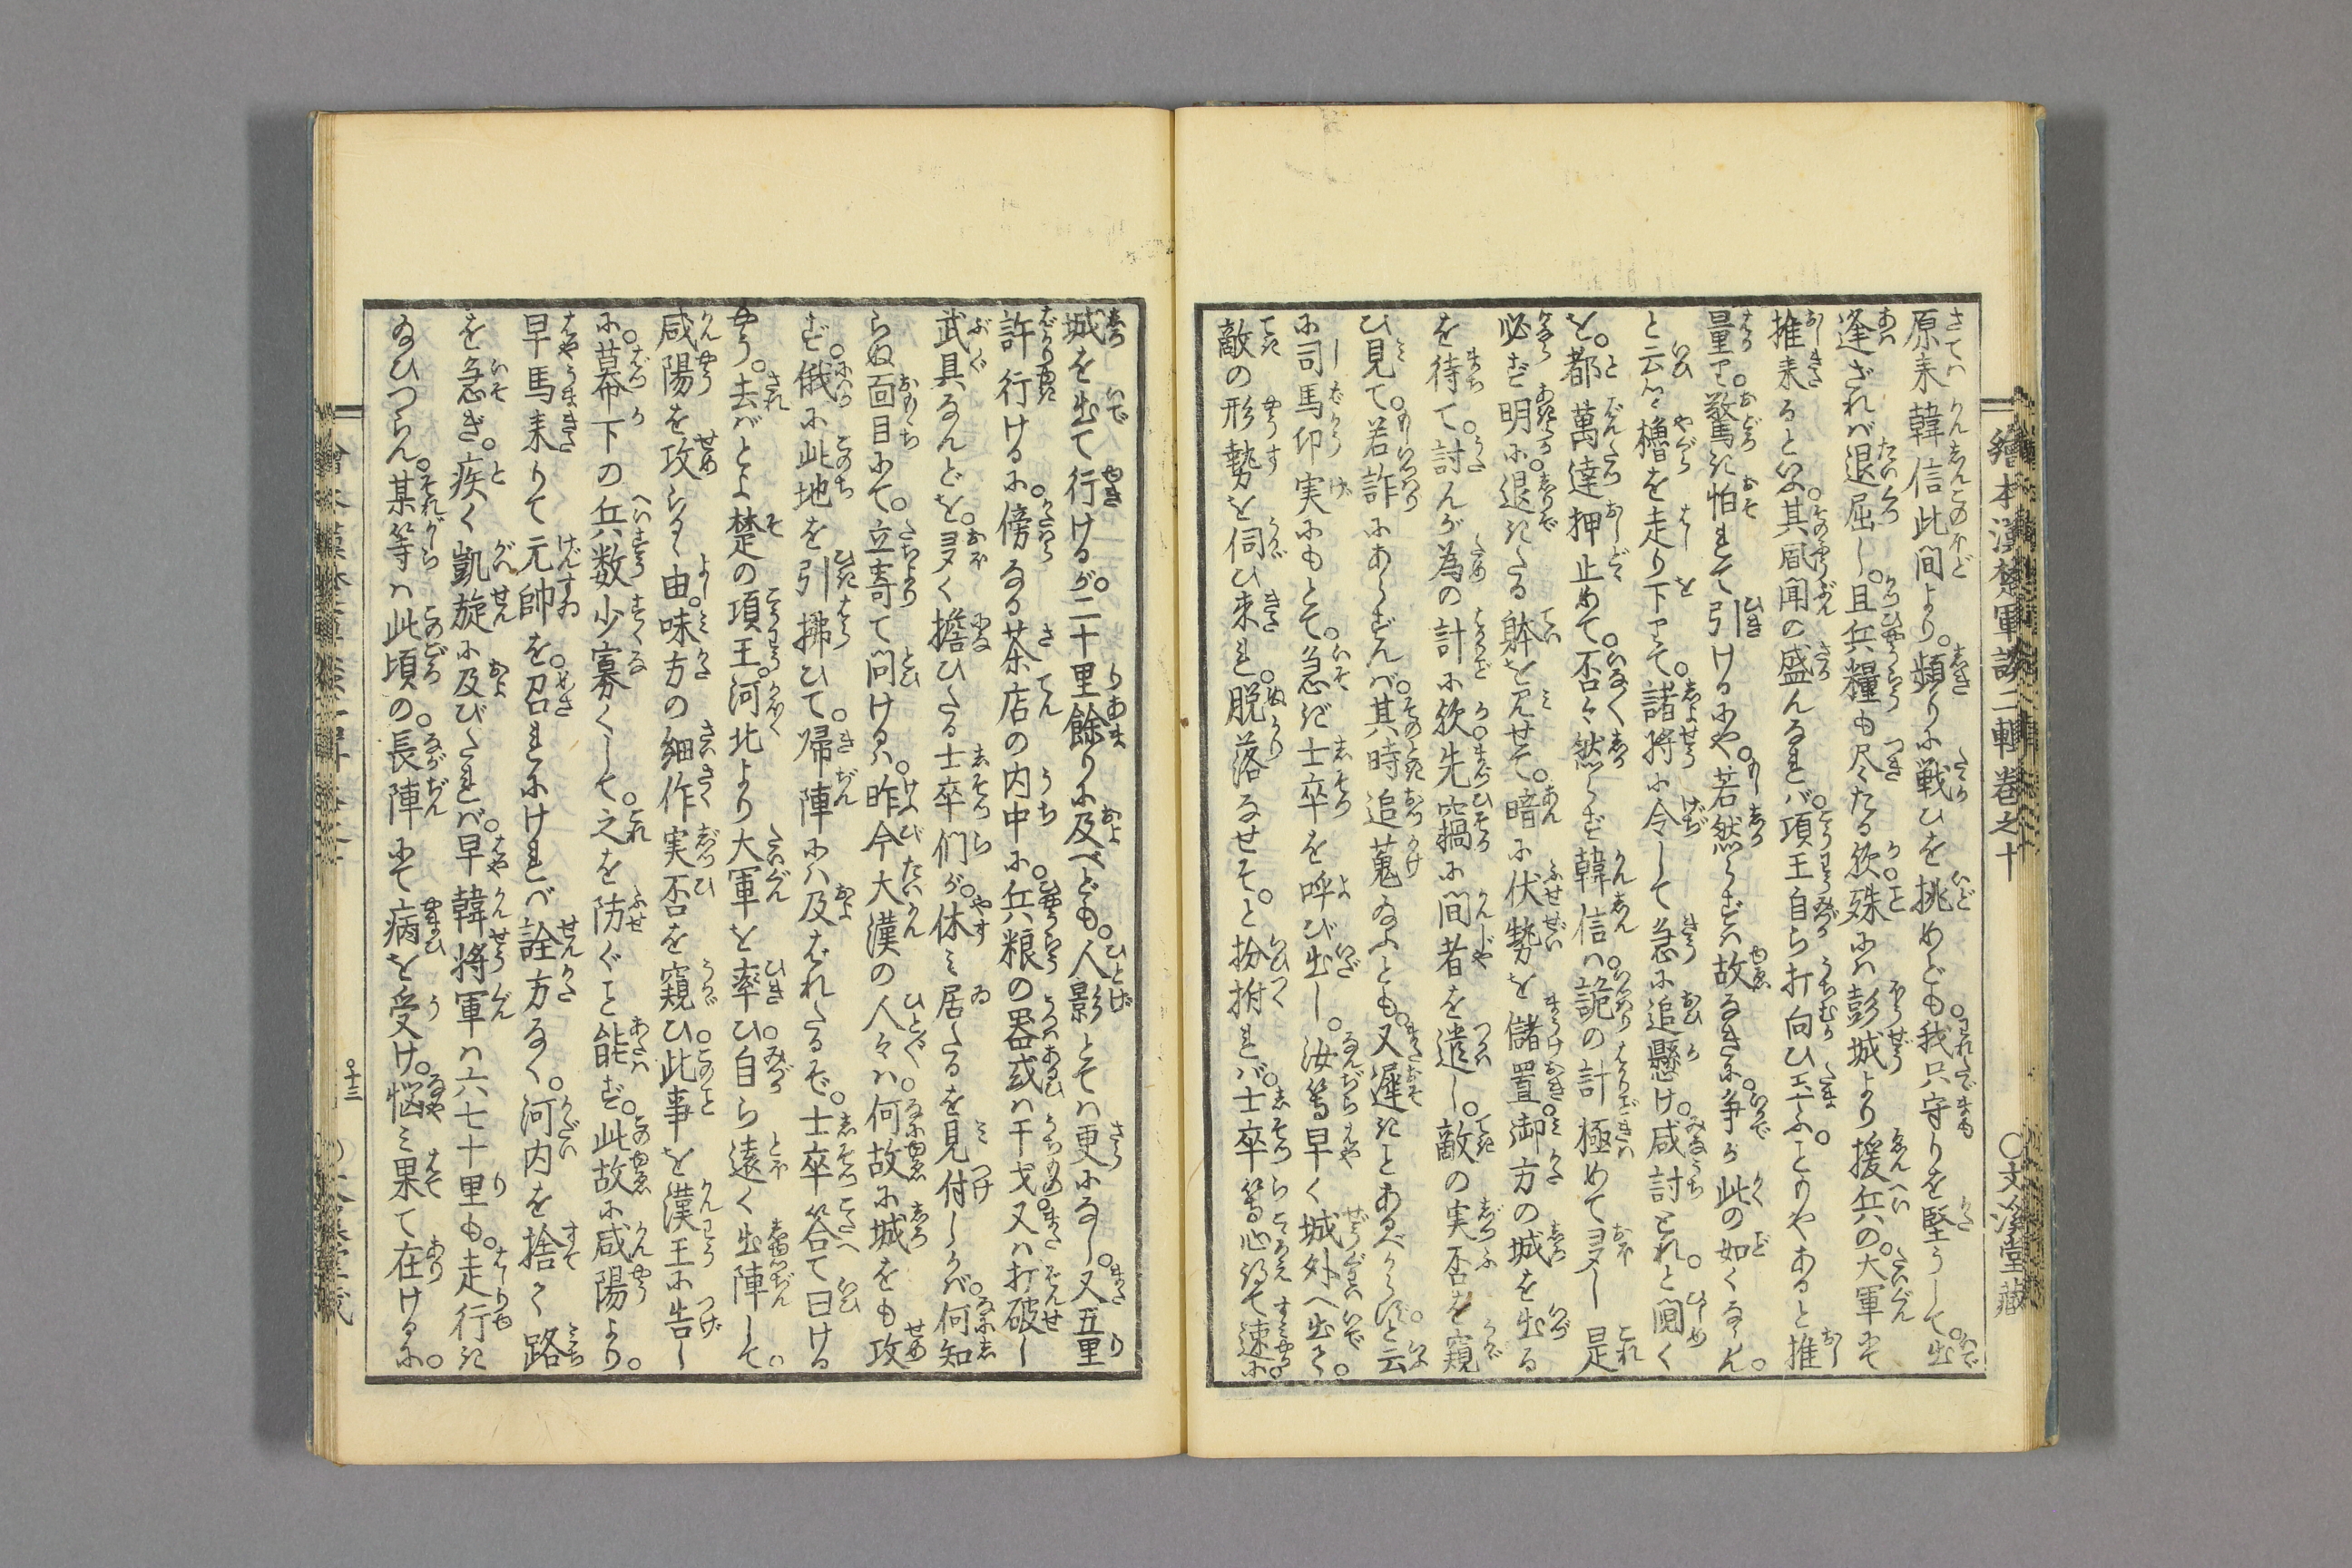 繪本漢楚軍談二輯巻之十
○文溪堂藏
原来韓信此間より。頻りに戦ひを挑めども。我只守りを堅うして。出
逢ざれバ退屈し。且兵糧も尽たる欤。殊にハ彭城より援兵の。大軍にて
推来るといふ。其風聞の盛んなれバ。項王自ら打向ひ玉ふ。ことりやあると推
量り。驚き怕れて引けるにや。若然らずハ故なきに。争か此の如くならん。
と云つゝ櫓を走り下りて。諸将に令して急に追懸け。咸討とれ。と鬩く
を。都萬達押止めて。否々然らず韓信ハ。詭の計極めて夛し是
必ず明に退きたる躰を見せて。暗に伏勢を儲置。御方の城を出る
を待て。討んが為の計に欤。先窃に間者を遣し。敵の実否を窺
ひ見て。若詐にあらずんバ。其時追蒐玉ふとも。又遲きことあるべからず。と云
に司馬卬実にもとて。急ぎ士卒を呼び出し。汝等早く城外へ出て。
敵の形勢を伺ひ来れ。脱落なせそ。と扮拊れバ。士卒等心得て速に。
城を出て行けるが。二十里餘りに及べども。人影とてハ更になし。又五里
許行けるに。傍なる茶店の内中に。兵粮の器或ハ干戈又ハ打破し
武具なんどを。夛く擔ひたる士卒們が。休み居たるを見付しかバ。何知
らぬ面目にて。立寄て問けるハ。昨今大漢の人々ハ。何故に城をも攻
ず。俄に此地を引拂ひて。帰陣にハ及ばれたるぞ。士卒答て曰ける
やう。去バとよ楚の項王。河北より大軍を率ひ。自ら遠く出陣して。
咸陽を攻らるゝ由。味方の細作実否を窺ひ。此事を漢王に告し
に。幕下の兵数少寡くして。之を防ぐこと能ず。此故に咸陽より。
早馬来りて元帥を。召れにければ詮方なく。河内を捨て路
を急ぎ。疾く凱旋に及びたれバ。早韓将軍ハ六七十里も。走行き
玉ひつらん。某等ハ此頃の。長陣にて病を受け。悩み果て在けるに。
十三